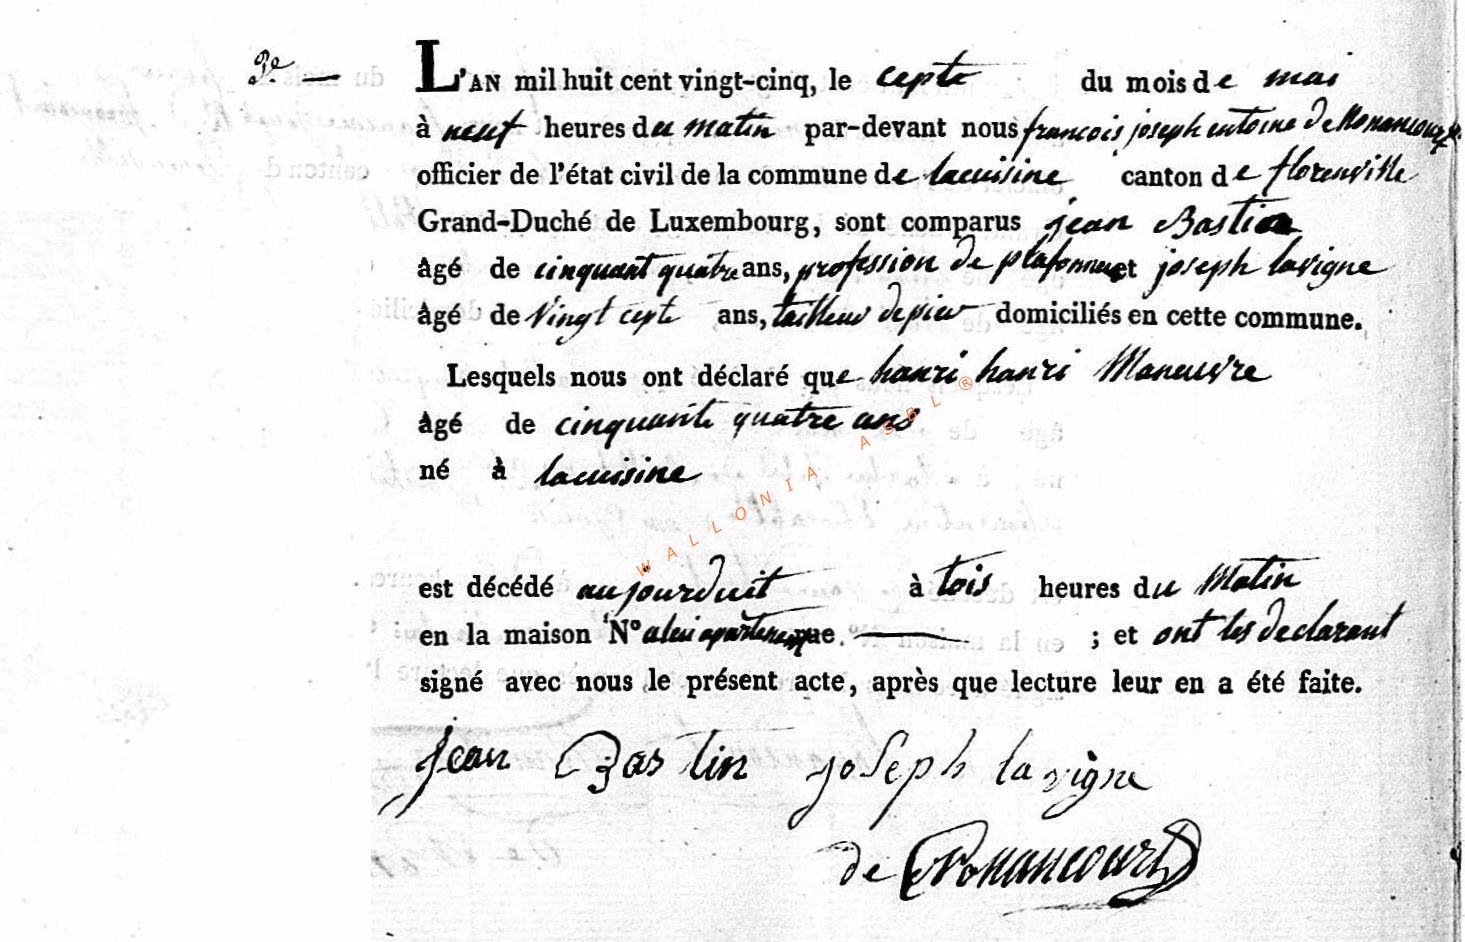 3e —
L'AN mil huit cent vingt-cinq, le cepte du mois de mai
à neuf heures du matin par-devant nous francois joseph entoine de Nonancourt
officier de l'état civil de la commune de lacuisine canton de florenville
Grand-Duché de Luxembourg, sont comparus jean Bastin
âgé de cinquant quatre ans, profession de plafonneur et joseph lavigne
âgé de vingt cepte ans, tailleur de pier domiciliés en cette commune.
Lesquels nous ont déclaré que hanri hanri Maneuvre
âgé de cinquante quatre ans
né à lacuisine
est décédé aujourduit à tois heures du Matin
en la maison N° a lui que. — ; et ont les declarant
signé avec nous le présent acte, après que lecture leur en a été faite.
jean Bastin joseph lavigne
de Nonancourt
WALLONIA ASBL ®